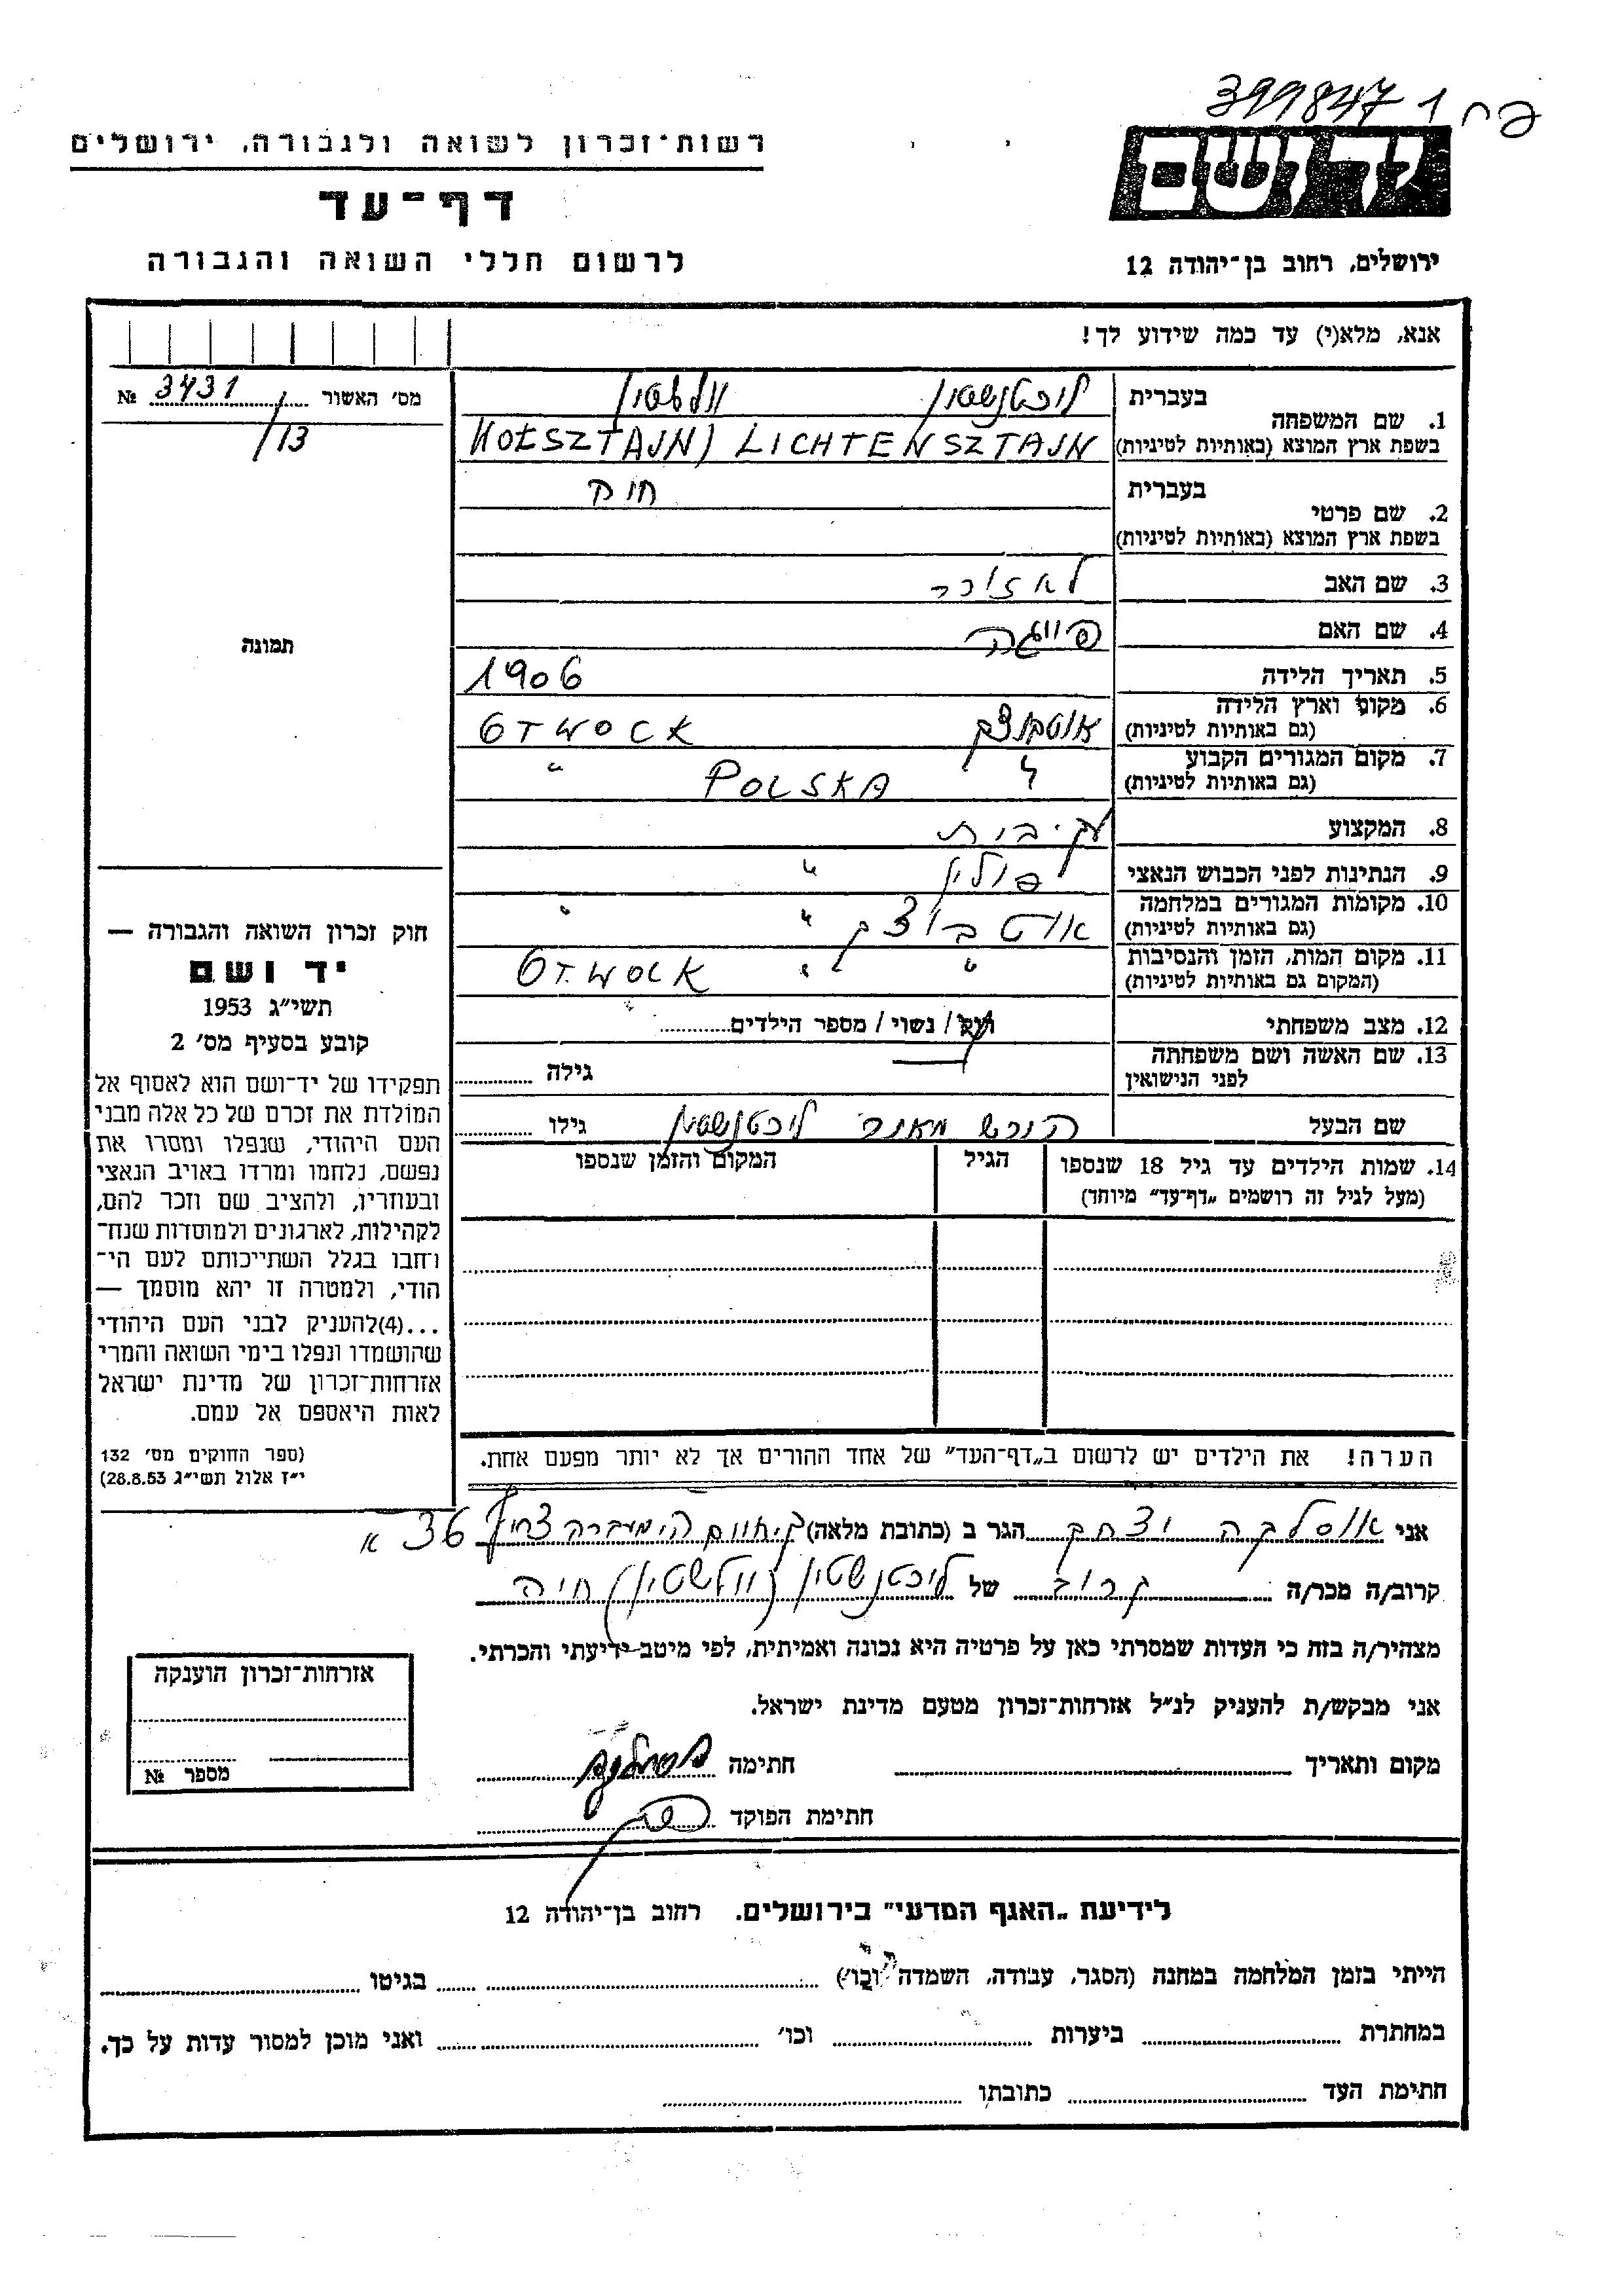 399847 1
ידושם
רשות־זכרון לשואה ולגבורה, ירושלים
דף־עד
ירושלים, רחוב בן־יהודה 12
לרשום חללי השואה והגבורה
אנא, מלא(י) עד כמה שידוע לך!
מס׳ האשור 3431 №
/13
1. שם המשפחה
בעברית ליכטנשטיין
בשפת ארץ המוצא (באותיות לטיניות) LICHTENSZTAJN
2. שם פרטי
בעברית
בשפת ארץ המוצא (באותיות לטיניות)
3. שם האב לאזור
4. שם האם פייגה
5. תאריך הלידה 1906
6. מקום וארץ הלידה אוטבוצק OTWOCK
(גם באותיות לטיניות)
7. מקום המגורים הקבוע POLSKA "
(גם באותיות לטיניות)
8. המקצוע
9. הנתינות לפני הכבוש הנאצי פולין "
10. מקומות המגורים במלחמה אוטבוצק " "
(גם באותיות לטיניות)
11. מקום המות, הזמן והנסיבות " " OTWOCK
(המקום גם באותיות לטיניות)
12. מצב משפחתי רוק / נשוי / מספר הילדים
13. שם האשה ושם משפחתה
לפני הנישואין
גילה
שם הבעל הירש מאנר ליכטנשטיין גילו
14. שמות הילדים עד גיל 18 שנספו
(מעל לגיל זה רושמים „דף־עד" מיוחד)
הגיל
המקום והזמן שנספו
הערה! את הילדים יש לרשום ב„דף־העד" של אחד ההורים אך לא יותר מפעם אחת.
תמונה
חוק זכרון השואה והגבורה —
יד ושם
תשי״ג 1953
קובע בסעיף מס׳ 2
תפקידו של יד־ושם הוא לאסוף אל
המולדת את זכרם של כל אלה מבני
העם היהודי, שנפלו ומסרו את
נפשם, נלחמו ומרדו באויב הנאצי
ובעוזריו, ולהציב שם וזכר להם,
לקהילות, לארגונים ולמוסדות שנח־
רחבו בגלל השתייכותם לעם הי־
הודי, ולמטרה זו יהא מוסמך —
...(4)להעניק לבני העם היהודי
שהושמדו ונפלו בימי השואה והמרי
אזרחות־זכרון של מדינת ישראל
לאות היאספם אל עמם.
(ספר החוקים מס׳ 132
י״ז אלול תשי״ג 28.8.53)
אני אוסלבה יצחק הגר ב (כתובת מלאה) המעברה צריף 36 א
קרוב/ה מכר/ה קרוב של ליכטנשטיין (וולשטיין) חיה
מצהיר/ה בזה כי העדות שמסרתי כאן על פרטיה היא נכונה ואמיתית, לפי מיטב ידיעתי והכרתי.
אני מבקש/ת להעניק לנ״ל אזרחות־זכרון מטעם מדינת ישראל.
מקום ותאריך חתימה
חתימת הפוקד
אזרחות־זכרון הוענקה
מספר №
לידיעת „האגף המדעי" בירושלים. רחוב בן־יהודה 12
הייתי בזמן המלחמה במחנה (הסגר, עבודה, השמדה וכו׳) בגיטו
במחתרת ביערות וכו׳ ואני מוכן למסור עדות על כך.
חתימת העד כתובתו